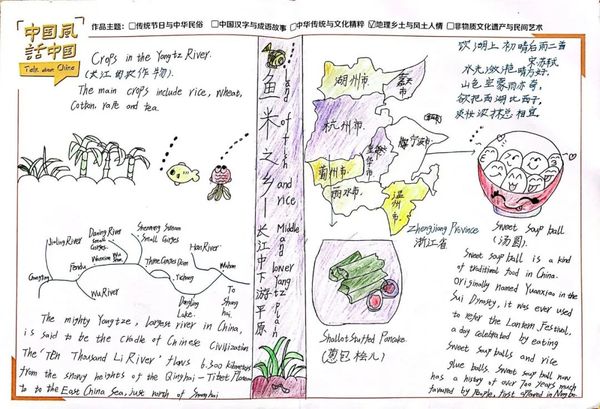 中国风
話中国
Talk about China
作品主题: □传统节日与中华民俗 □中国汉字与成语故事 □中华传统与文化精粹 ☑地理乡土与风土人情 □非物质文化遗产与民间艺术
Crops in the Yangtz River.
(长江的农作物).
The main crops include rice, wheat,
Cotton and tea.
Jinling River
Daning River
Small Gorges.
Shennong Stream
Small Gorges
Wuxia
Fendu
Three Gorges Dam
Han River
Wuhan
Chongqing
Wu River
Yichang
Dongting
Lake.
To
Shang
hai.
The mighty Yangtze, largest river in China,
is said to be the cradle of Chinese Civilization
The "Ten Thousand Li River" flows 6.300 kilometers
from the snowy heights of the Qinghai-Tibet Plateau
to to the East China Sea, just north of Shanghai
鱼米之乡—长江中下游平原
land of fish and rice
Middle and lower Yangtz Plain
湖州市
杭州市
宁波市
衢州市
丽水市
温州市
Zhengjiang Province
浙江省
Shallot Stuffed Pancake
(葱包桧儿)
饮湖上初晴后雨二首
宋苏轼
水光潋滟晴方好,
山色空蒙雨亦奇,
欲把西湖比西子,
淡妆浓抹总相宜
Sweet soup ball
(汤圆).
Sweet soup ball is a kind
of traditional food in China.
Originally named Yuanxiao in the
Sui Dynasty, it was ever used
to refer the Lantern Festival.
a day celebrated by eating
Sweet soup balls and rice
glue balls. Sweet soup ball now
has a history of over 700 years much
favoured by people, first offered in Ningbo